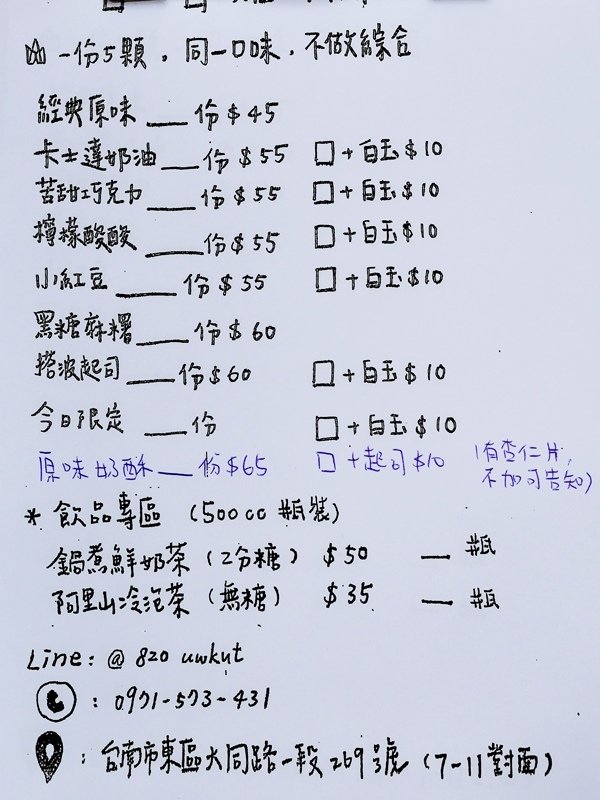 一份5顆，同一口味，不做綜合
經典原味 ___ 份 $45
卡士達奶油 ___ 份 $55 □+白玉$10
苦甜巧克力 ___ 份 $55 □+白玉$10
檸檬酸酸 ___ 份 $55 □+白玉$10
小紅豆 ___ 份 $55 □+白玉$10
黑糖麻糬 ___ 份 $60
搭波起司 ___ 份 $60 □+白玉$10
今日限定 ___ 份 □+白玉$10
原味奶酥 ___ 份 $65 □+起司$10 (有杏仁片,
不加可告知)
* 飲品專區 (500cc 瓶裝)
鍋煮鮮奶茶 (2分糖) $50 __ 瓶
阿里山冷泡茶 (無糖) $35 __ 瓶
Line: @ 820 uwkut
: 0971-573-431
: 台南市東區大同路一段269號 (7-11對面)